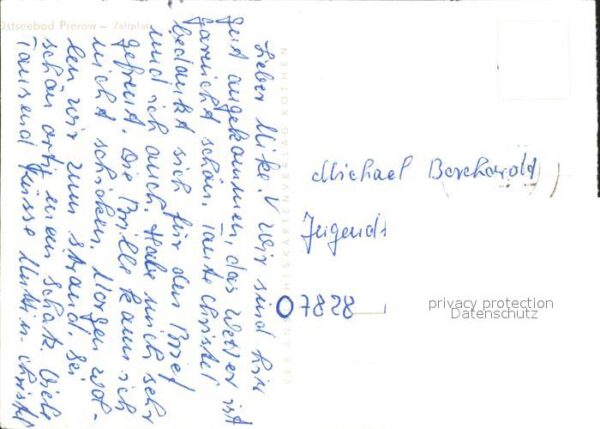 Ostseebad Prerow – Zeltplatz
Lieber Mike! Wir sind hier
gut angekommen, das Wetter ist
garnicht schön. Tante Christel
bedankt sich für den Brief
und ich auch. Habe mich sehr
gefreut. Die Brille kann ich
nicht schicken. Morgen wol-
len wir zum Strand. Sei
schön artig mein Schatz. Viele
Tausend Küsse Mutti u. Christel
VEB ANSICHTSKARTENVERLAG KÖTHEN
Michael Borchardt
Jugends
07828
privacy protection
Datenschutz